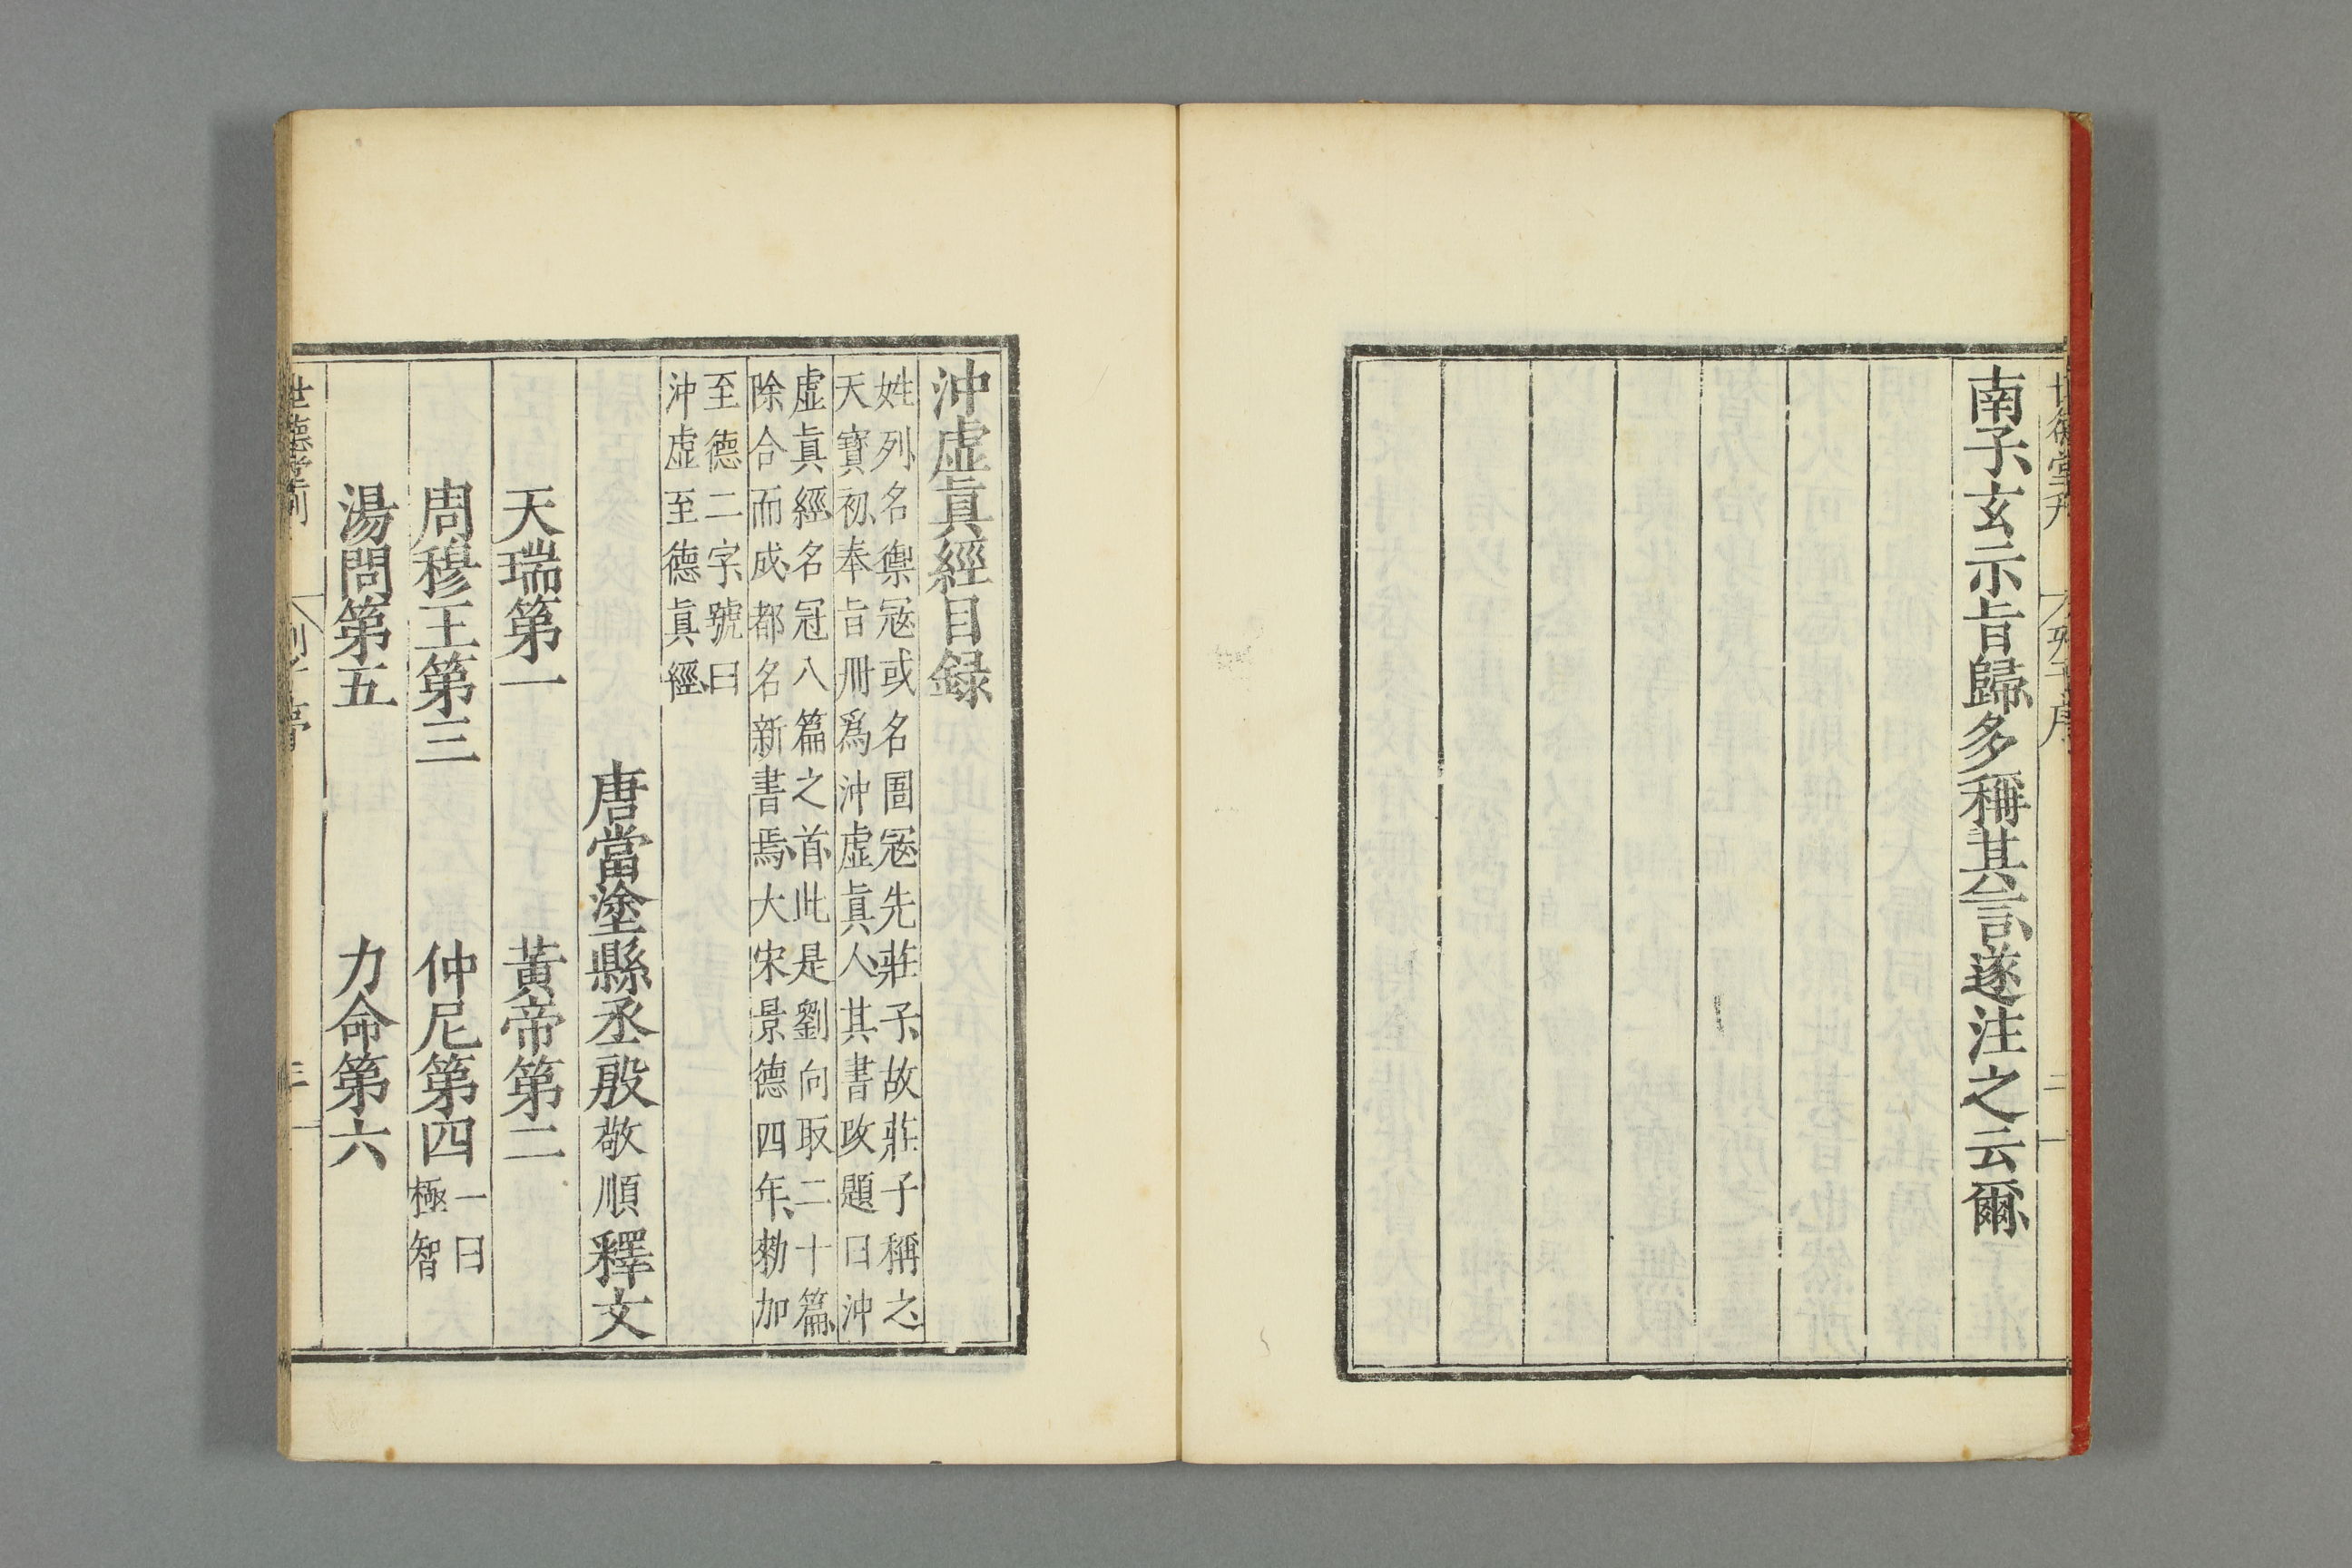 南子玄示旨歸多稱其言遂注之云爾
沖虛眞經目録
姓列名禦冦或名圄冦先莊子故莊子稱之
天寶初奉旨冊爲沖虛眞人其書改題曰沖
虛眞經名冠八篇之首此是劉向取二十篇
除合而成都名新書焉大宋景德四年勑加
至德二字號曰
沖虛至德眞經
唐當塗縣丞殷敬順釋文
天瑞第一 黃帝第二
周穆王第三 仲尼第四 一曰極智
湯問第五 力命第六
世德堂刊